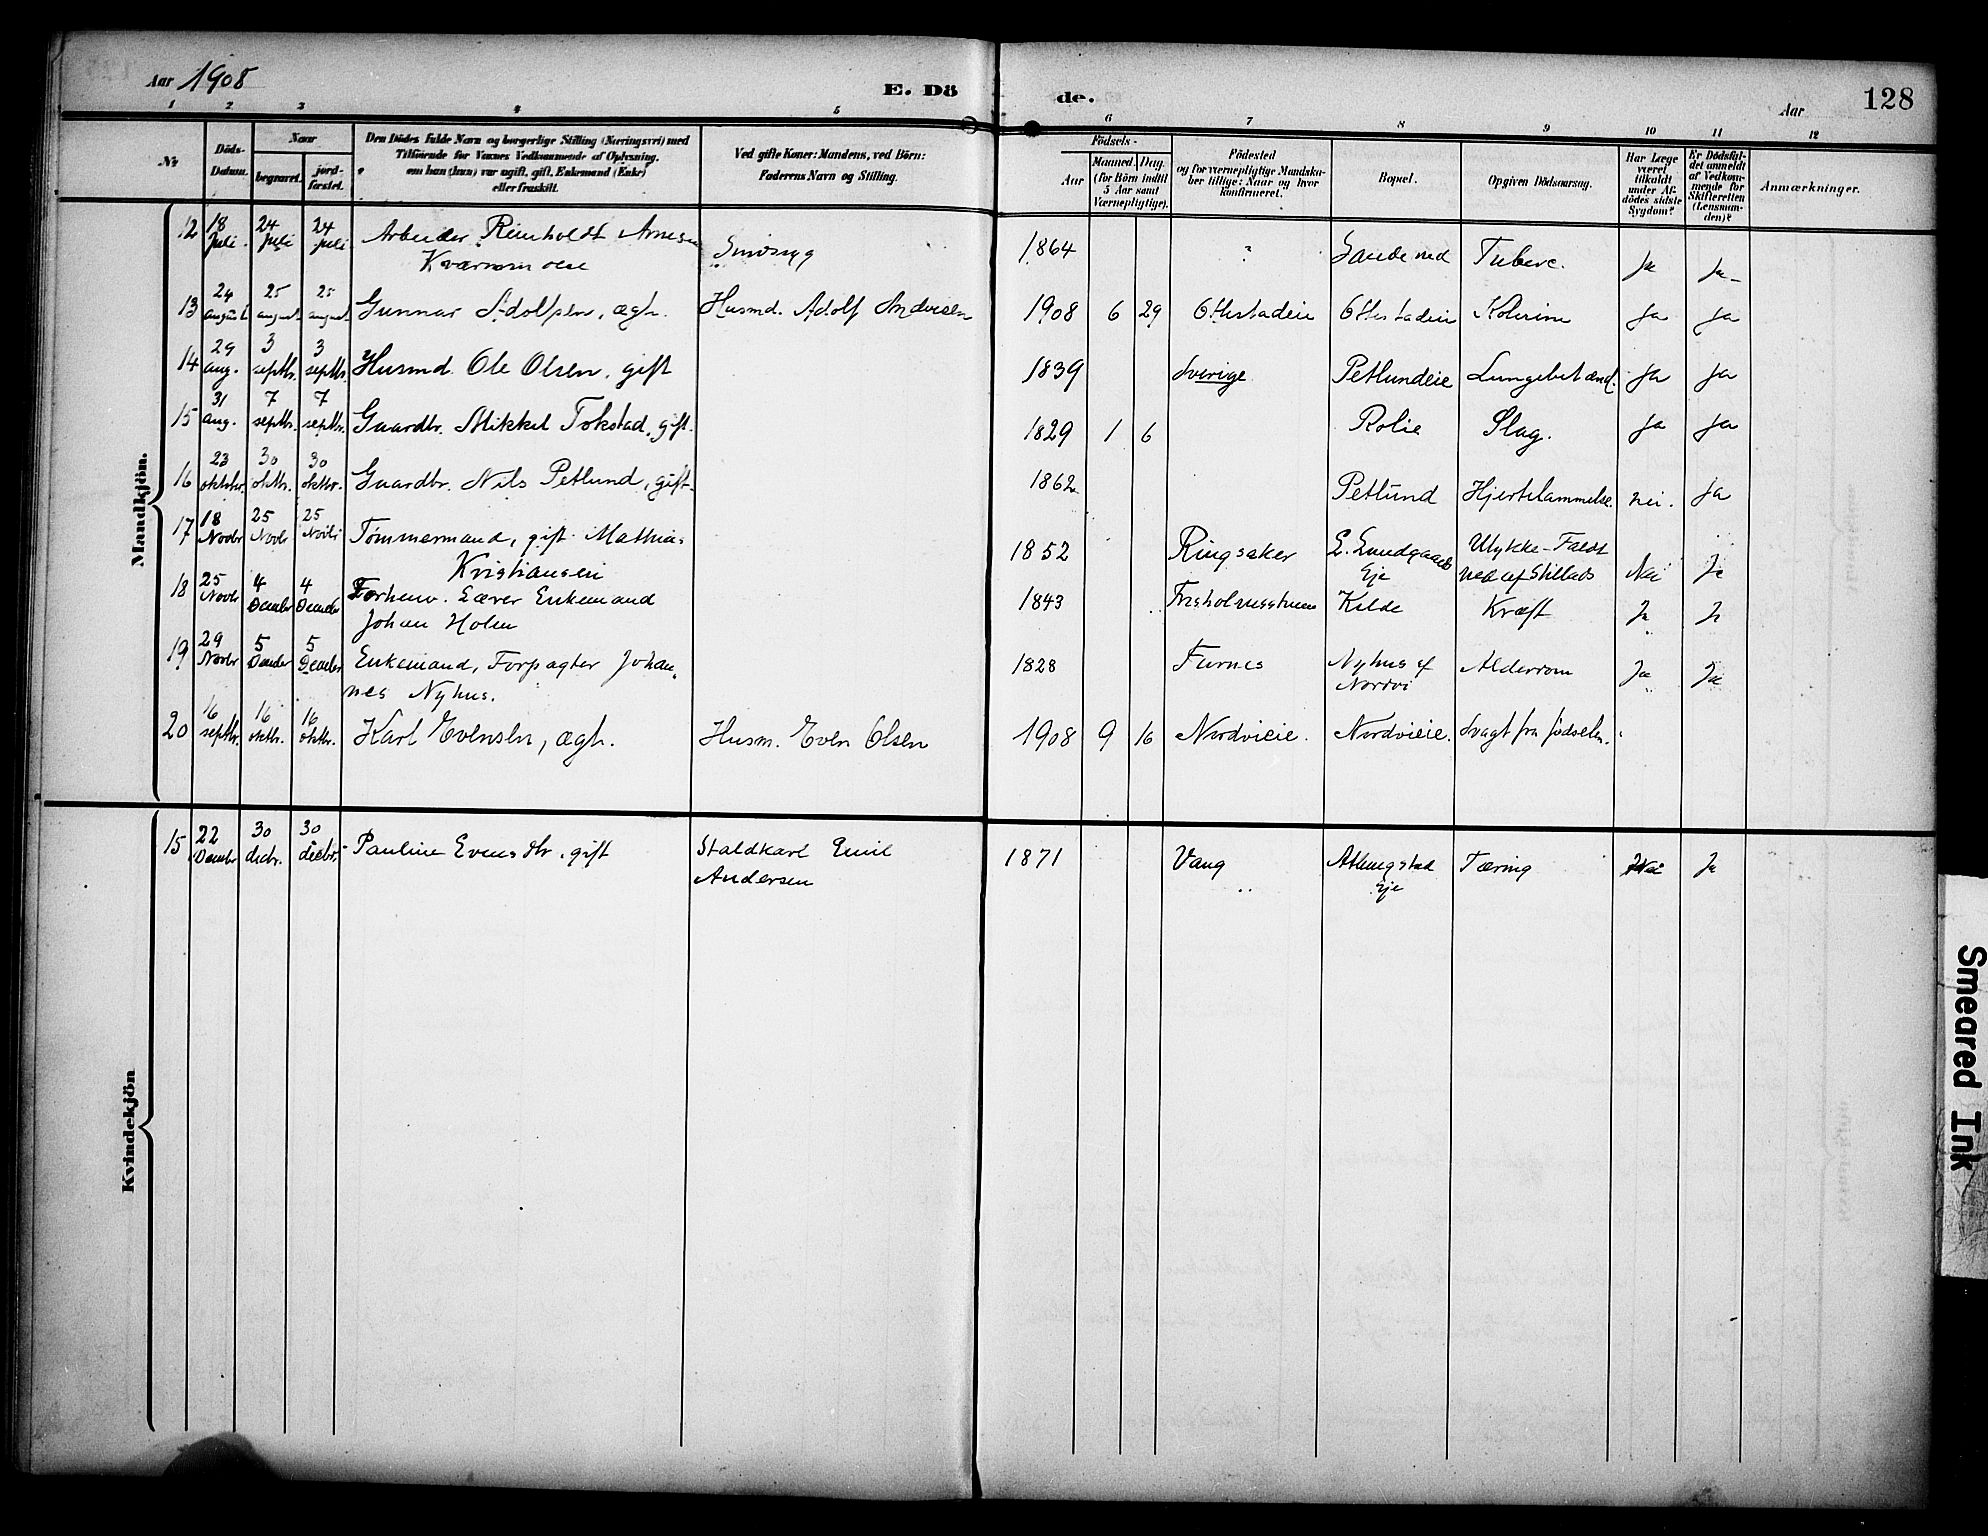 Aar 1908
E. Dö
de.
Aar
128
1 2 3 4 5 6 7 8 9 10 11 12
No
Döds-
Datum.
Naar
begravet.
jord-
fæstet.
Den Dödes fulde Navn og borgerlige Stilling (Næringsvei) med
Tilföiende for Voxnes Vedkommende af Oplysning,
om han (hun) var ugift, gift, Enkemand (Enke)
eller fraskilt.
Ved gifte Koner: Mandens, ved Börn:
Faderens Navn og Stilling.
Födsels-
Aar
Maaned. Dag.
(for Börn indtil
5 Aar samt
Værnepligtige).
Födested
og for værnepligtige Mandska-
ber tillige: Naar og hvor
konfirmeret.
Bopæl.
Opgiven Dödsaarsag.
Har Læge
været
tilkaldt
under Af-
dödes sidste
Sygdom?
Er Dödsfal-
det anmeldt
af Vedkom-
mende for
Skifteretten
(Lensman-
den)?
Anmærkninger.
Mandkjön.
12 18 Juli. 24 Juli 24 Juli Arbeider Reinholdt Arnesen Kværnmoen Sindsyg 1864 Tuberc. Ja Ja
13 24 august 25 august 25 august Gunnar Adolfsen, ægt. Husmd. Adolf Andersen 1908 6 29 Ottestadeie Ottestadeie Kolerine Ja Ja
14 29 aug. 3 septbr. 3 septbr. Husmd. Ole Olsen, gift 1839 Sverige. Petlundeie Lungebetænd. Ja Ja
15 31 aug. 7 septbr. 7 septbr. Gaardbr. Mikkel Tokstad, gift. 1829 1 6 Rolie Slag. Ja Ja
16 23 oktbr. 30 oktbr. 30 oktbr. Gaardbr. Nils Petlund, gift. 1862 Petlund Hjertelammelse. nei. Ja
17 18 Novbr 25 Novbr 25 Novbr Tømmermand, gift Mathias Kristiansen 1852 Ringsaker Eje Ulykke-Faldt ned af Stillads Nei Ja
18 25 Novbr 4 Decmbr 4 Decmbr Forhenv. Lærer Enkemand Johan Holen 1843 Kilde Kræft Ja Ja
19 29 Novbr 5 Decmbr 5 Decmbr Enkemand, Forpagter Johan- nes Nyhus. 1828 Furnes Nyhus af Nordvi Alderdom Ja Ja
20 16 septbr. 16 oktbr. 16 oktbr. Karl Evensen, ægt. Husm. Even Olsen 1908 9 16 Nordvieie. Nordvieie. Svagt fra fødselen.
Kvindekjön
15 22 Decmbr 30 decbr. 30 decbr. Pauline Evensdtr. gift Staldkarl Emil Andersen 1871 Vang Eje Tæring Nei Ja
Smeared Ink